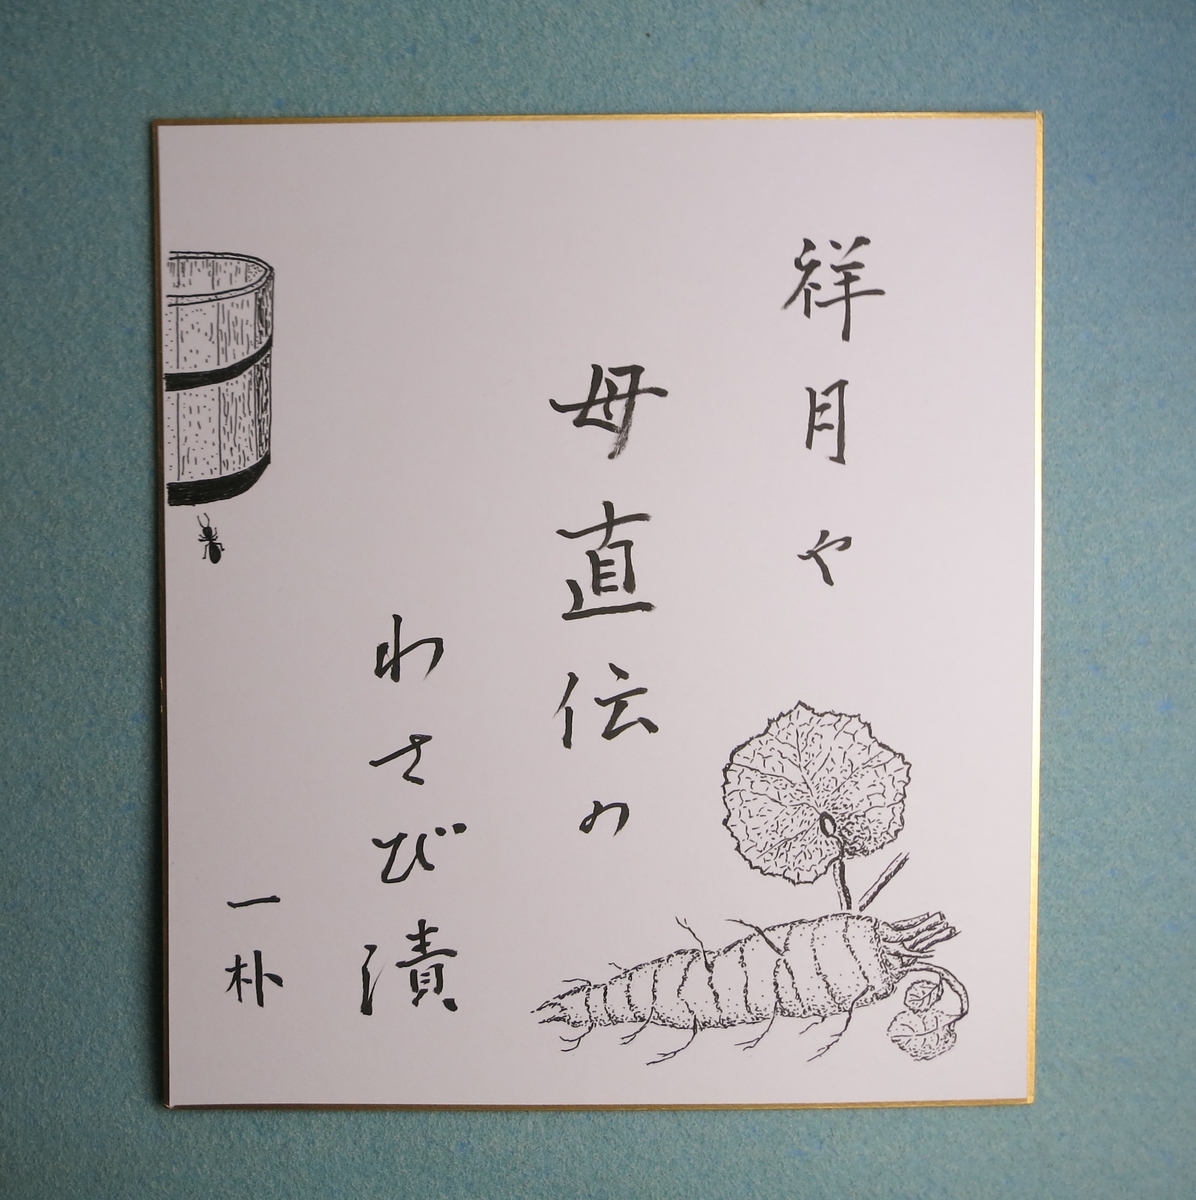 祥月や
母直伝の
わさび漬
一朴